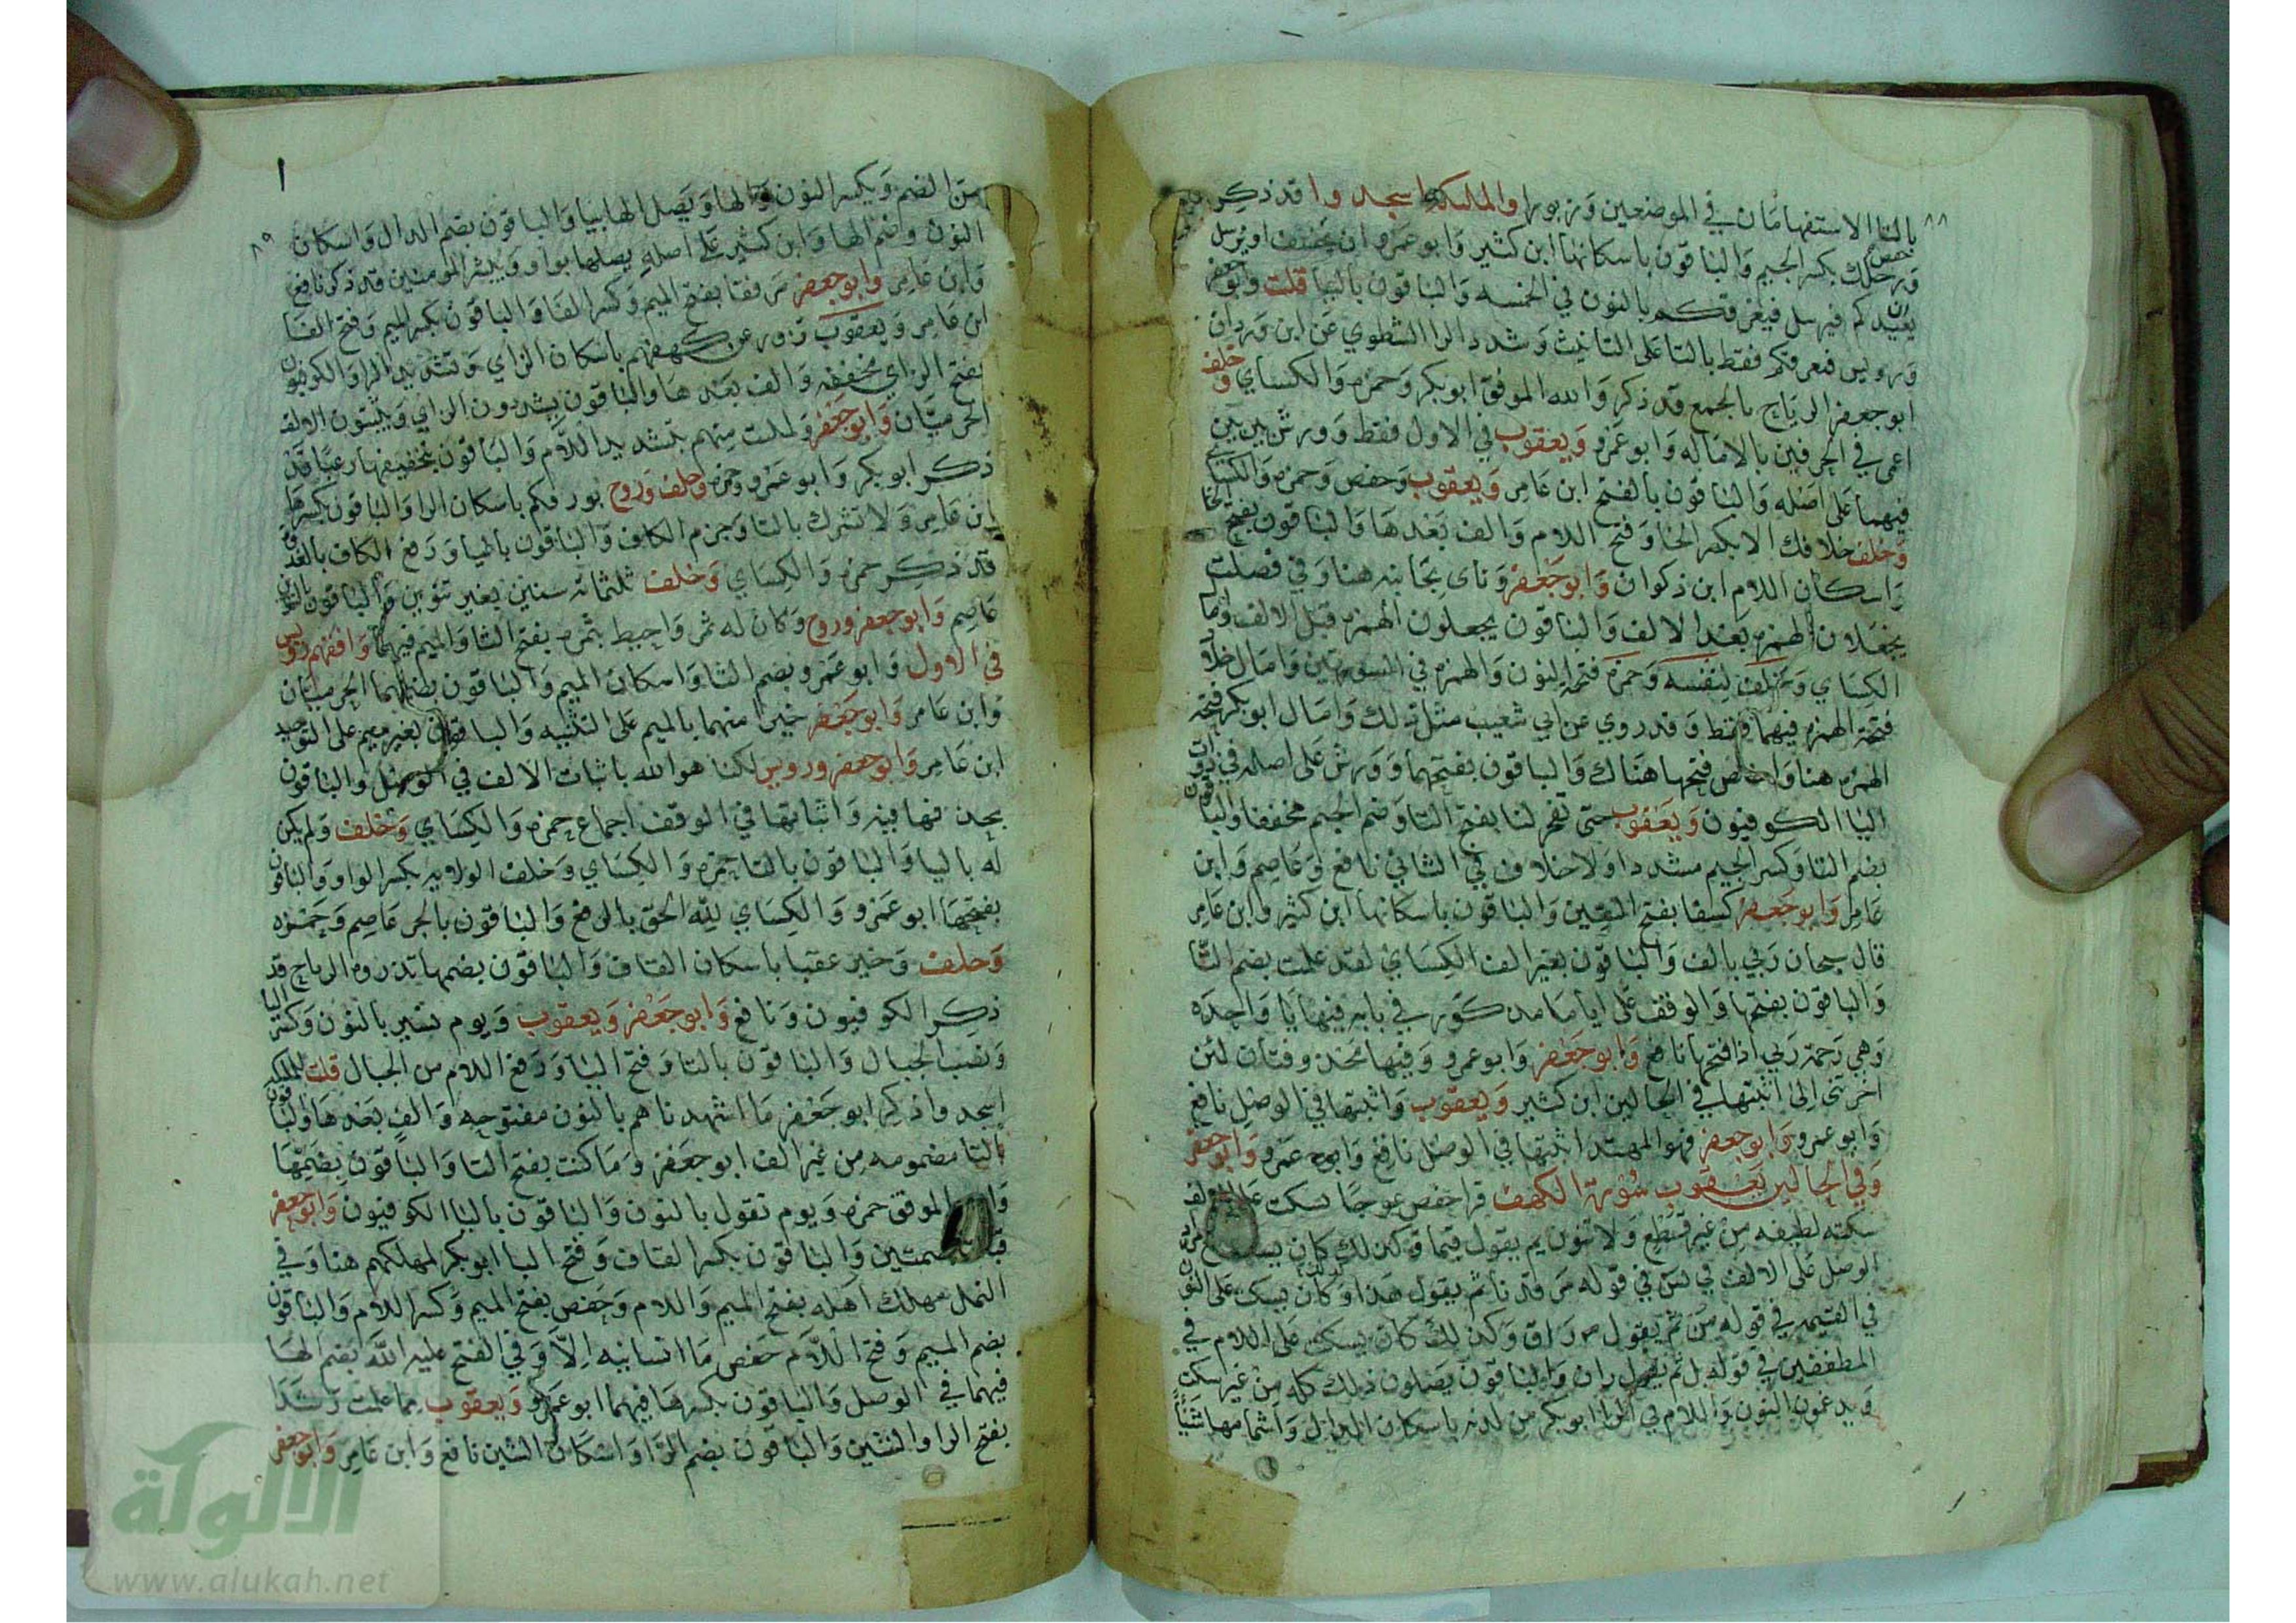 ٨٨
بالتا الاستفهامان في الموضعين وزبورا والملئكة اسجدوا قد ذكر حفص
ورجلك بكسر الجيم والباقون باسكانها ابن كثير وابو عمرو ان نخسف او نرسل ان
نعيدكم فنرسل فنغرقكم بالنون في الخمسه والباقون باليا قلت وابو جعفر
ورويس فتغرقكم فقط بالتا على التانيث وشدد الرا الشطوي عن ابن وردان
ابو جعفر الرياح بالجمع قد ذكر والله الموفق ابو بكر وحمزه والكساي وخلف
اعمى في الحرفين بالاماله وابو عمرو ويعقوب في الاول فقط وورش بين بين
فيهما على اصله والباقون بالفتح ابن عامر ويعقوب وحفص وحمزه والكساي
وخلف خلافك الا بكسر الخا وفتح اللام والف بعدها والباقون بفتح الخا
واسكان اللام ابن ذكوان وابو جعفر وناى بجانبه هنا وفي فصلت
يجعلان الهمزه بعد الالف والباقون يجعلون الهمزه قبل الالف وامال
الكساي وخلف لنفسه وحمزه فتحة النون والهمزه في السورتين وامال خلاد
فتحة الهمزه فيهما فقط وقد روي عن ابي شعيب مثل ذلك وامال ابو بكر فتحة
الهمزه هنا واخلص فتحها هناك والباقون بفتحهما وورش على اصله في ذوات
اليا الكوفيون ويعقوب حتى تفجر لنا بفتح التا وضم الجيم مخففا والباقون
بضم التا وكسر الجيم مشددا ولا خلاف في الثاني نافع وعاصم وابن
عامر وابو جعفر كسفا بفتح السين والباقون باسكانها ابن كثير وابن عامر
قال سبحان ربي بالف والباقون بغير الف الكساي لقد علمت بضم التا
والباقون بفتحها والوقف على ايا ما مذكور في بابه فيها يا واحده
وهي رحمة ربي اذا فتحها نافع وابو جعفر وابو عمرو وفيها محذوفتان لئن
اخرتني الى اثبتها في الحالين ابن كثير ويعقوب واثبتها في الوصل نافع
وابو عمرو وابو جعفر فهو المهتد اثبتها في الوصل نافع وابو عمرو وابو جعفر
وفي الحالين يعقوب سورة الكهف قرا حفص عوجا يسكت على الالف
سكته لطيفه من غير قطع ولا تنوين ثم يقول قيما وكذلك كان يسكت مراد
الوصل على الالف في يس في قوله مرقدنا ثم يقول هذا وكان يسكت على النون
في القيمه في قوله من ثم يقول راق وكذلك كان يسكت على اللام في
المطففين في قوله بل ثم يقول ران والباقون يصلون ذلك كله من غير سكت
ويدغمون النون واللام في الرا ابو بكر من لدنه باسكان الدال واشمامها شيئا
٨٩
من الضم ويكسر النون والها ويصل الها بيا والباقون بضم الدال واسكان
النون وضم الها وابن كثير على اصله يصلها بواو ويبشر المومنين قد ذكر نافع
وابن عامر وابو جعفر مرفقا بفتح الميم وكسر الفا والباقون بكسر الميم وفتح الفا
ابن عامر ويعقوب تزور عن كهفهم باسكان الزاي وتشديد الرا والكوفيون
بفتح الزاي مخففه والف بعدها والباقون يشددون الزاي ويثبتون الالف
الحرميان وابو جعفر ولملئت منهم بتشديد اللام والباقون بتخفيفها رعبا قد
ذكر ابو بكر وابو عمرو وحمزه وخلف وروح بورقكم باسكان الرا والباقون بكسرها
ابن عامر ولا تشرك بالتا وجزم الكاف والباقون باليا ورفع الكاف بالغدوة
قد ذكر حمزه والكساي وخلف ثلثمائة سنين بغير تنوين والباقون بالتنوين
عاصم وابو جعفر وروح وكان له ثمر واحيط بثمره بفتح الثا والميم فيهما وافقهم رويس
في الاول وابو عمرو بضم الثا واسكان الميم والباقون بضمهما الحرميان
وابن عامر وابو جعفر خيرا منهما بالميم على التثنيه والباقون بغير ميم على التوحيد
ابن عامر وابو جعفر ورويس لكنا هو الله باثبات الالف في الوصل والباقون
بحذفها فيه واثباتها في الوقف اجماع حمزه والكساي وخلف ولم يكن
له باليا والباقون بالتا حمزه والكساي وخلف الولايه بكسر الواو والباقون
بفتحها ابو عمرو والكساي لله الحق بالرفع والباقون بالجر عاصم وحمزه
وخلف وخير عقبا باسكان القاف والباقون بضمها تذروه الرياح قد
ذكر الكوفيون ونافع وابو جعفر ويعقوب ويوم نسير بالنون وكسر اليا
ونصب الجبال والباقون بالتا وفتح اليا ورفع اللام من الجبال قلت للملئكة
اسجدوا ذكر ابو جعفر ما اشهدناهم بالنون مفتوحه والف بعدها والباقون
بالتا مضمومه من غير الف ابو جعفر وما كنت بفتح التا والباقون بضمها
الموفق حمزه ويوم نقول بالنون والباقون باليا الكوفيون وابو جعفر
قبلا بضمتين والباقون بكسر القاف وفتح البا ابو بكر لمهلكهم هنا وفي
النمل مهلك اهله بفتح الميم واللام وحفص بفتح الميم وكسر اللام والباقون
بضم الميم وفتح اللام حفص ما انسانيه الا وفي الفتح عليه الله بضم الها
فيهما في الوصل والباقون بكسرها فيهما ابو عمرو ويعقوب مما علمت رشدا
بفتح الرا والشين والباقون بضم الرا واسكان الشين نافع وابن عامر وابو جعفر
الألوكة
www.alukah.net